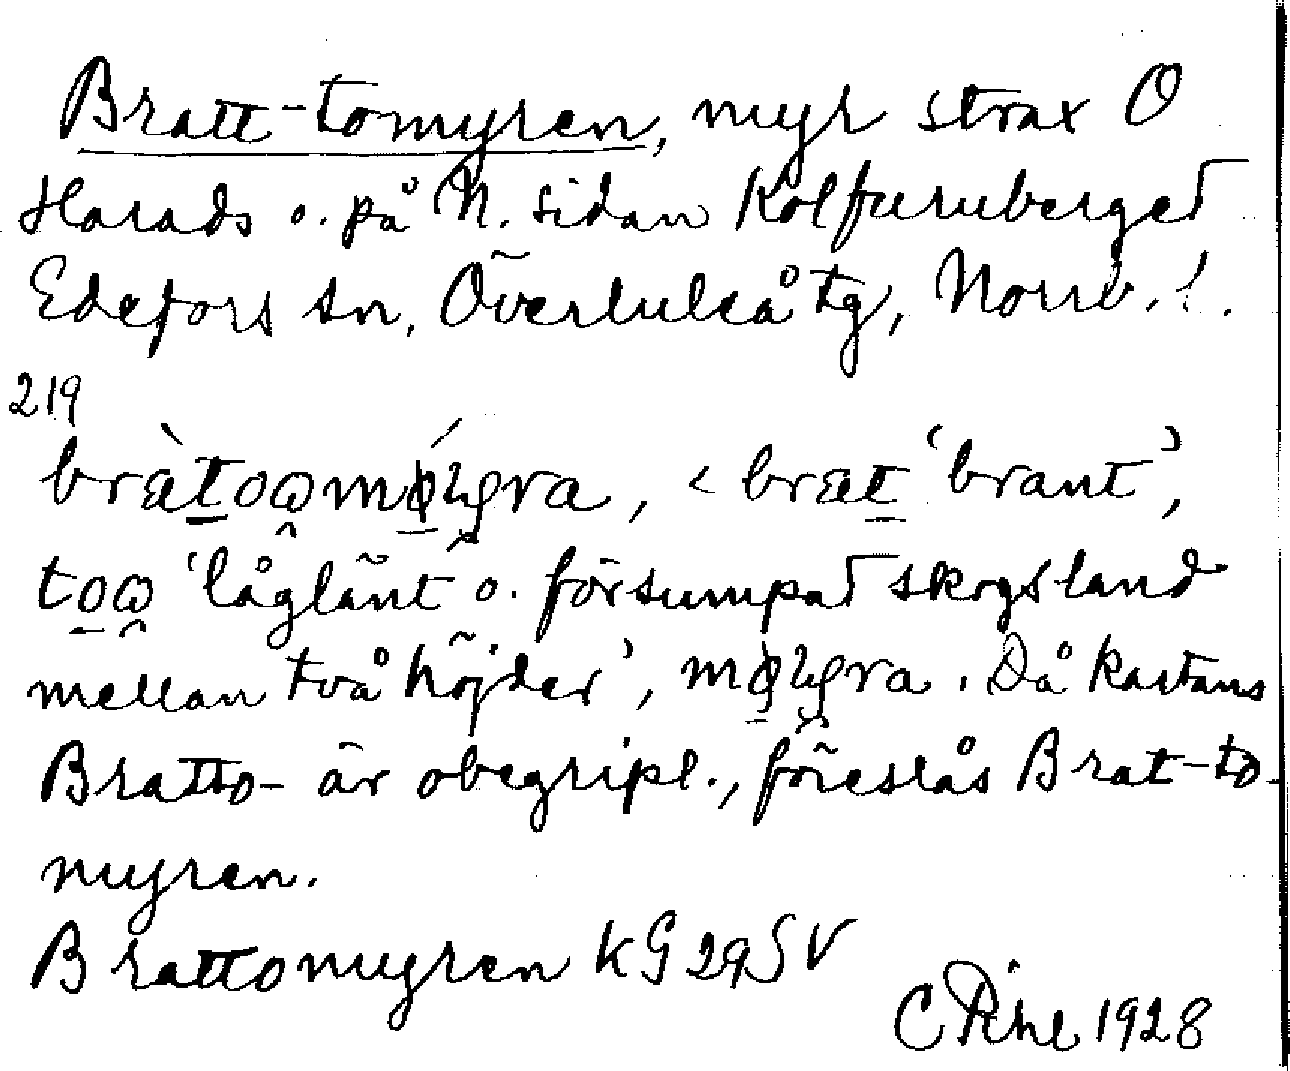 Bratt-tomyren, myr strax O
Harads o. på N. sidan Kolfuruberget
Edefors sn, Överluleå tg, Norrb.!.
219
brat, < brat 'brant',
'låglänt o. försumpat skogsland
mellan två höjder', . Då kartans
Bratto- är obegripl., föreslås Brat-to-
myren.
Brattomyren KG 29 SV
C Pihl 1928